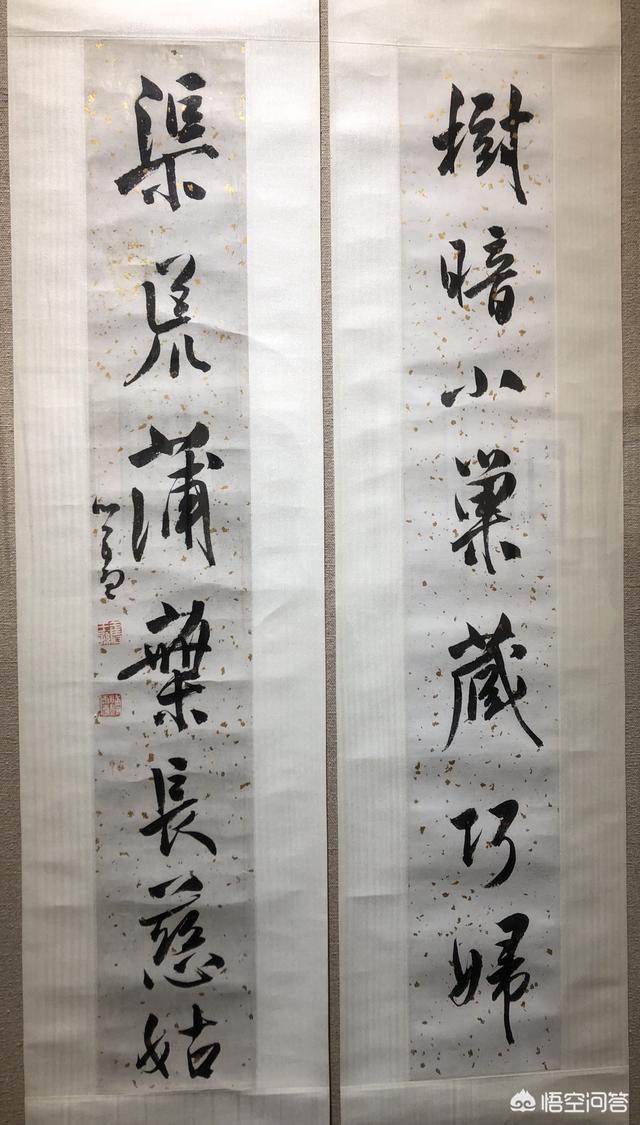 樹暗小巢藏巧婦
渠荒蒲葉長慈姑
心畬
悟空问答